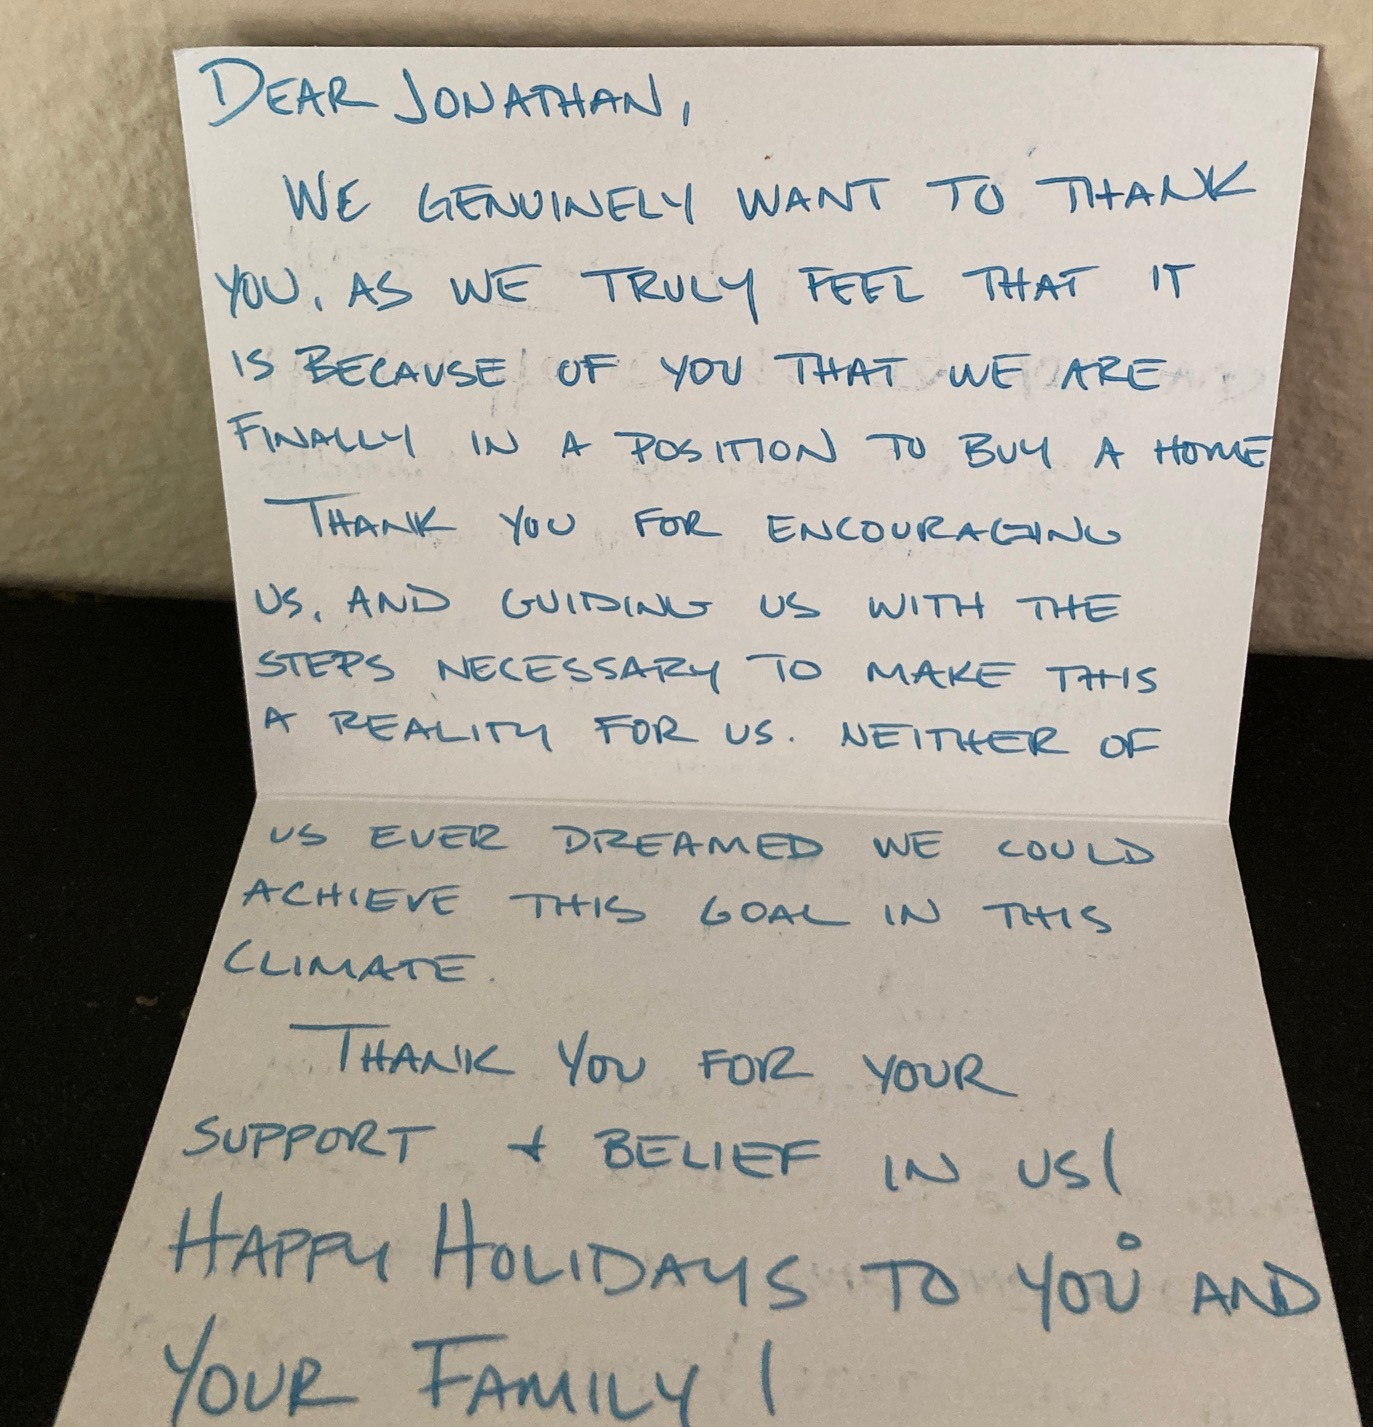 DEAR JONATHAN,
WE GENUINELY WANT TO THANK
YOU, AS WE TRULY FEEL THAT IT
IS BECAUSE OF YOU THAT WE ARE
FINALLY IN A POSITION TO BUY A HOME
THANK YOU FOR ENCOURAGING
US, AND GUIDING US WITH THE
STEPS NECESSARY TO MAKE THIS
A REALITY FOR US. NEITHER OF
US EVER DREAMED WE COULD
ACHIEVE THIS GOAL IN THIS
CLIMATE.
THANK YOU FOR YOUR
SUPPORT + BELIEF IN US!
HAPPY HOLIDAYS TO YOU AND
YOUR FAMILY!